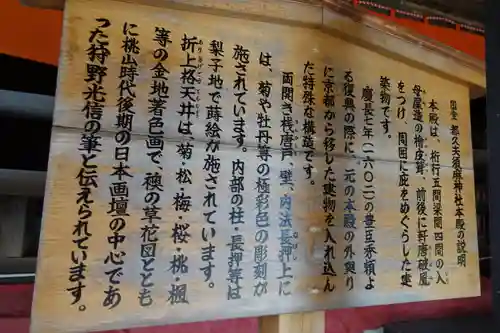 国宝 都久夫須麻神社本殿の説明
本殿は、桁行五間梁間四間の入
母屋造の檜皮葺、前後に軒唐破風
をつけ、周囲に庇をめぐらした建
築物です。
慶長七年(一六〇二)の豊臣秀頼よ
る復興の際に、元の本殿の外廻り
に京都から移した建物を入れ込ん
だ特殊な構造です。
両開き桟唐戸、壁、内法長押上に
は、菊や牡丹等の極彩色の彫刻が
施されています。内部の柱・長押等は
梨子地で蒔絵が施されています。
折上格天井は、菊・松・梅・桜・桃・楓
おりあげごうてんじょう
等の金地著色画で、襖の草花図ととも
に桃山時代後期の日本画壇の中心であ
った狩野光信の筆と伝えられています。